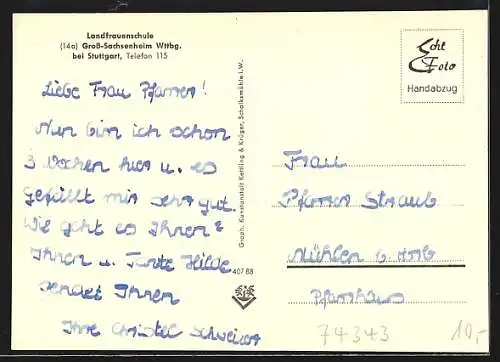 Landfrauenschule
(14a) Groß-Sachsenheim Wttbg.
bei Stuttgart, Telefon 115
Liebe Frau Pfarrer!
Nun bin ich schon
3 Wochen hier u. es
gefällt mir sehr gut.
Wie geht es Ihnen?
Ihnen u. Tante Hilde
sendet Ihnen
Ihre Christel Schweizer
Graph. Kunstanstalt Kettling & Krüger, Schalksmühle i.W.
40788
Echt
Foto
Handabzug
Frau
Pfarrer Straub
Mühlen b. Horb
Pfarrhaus
74343
10,-